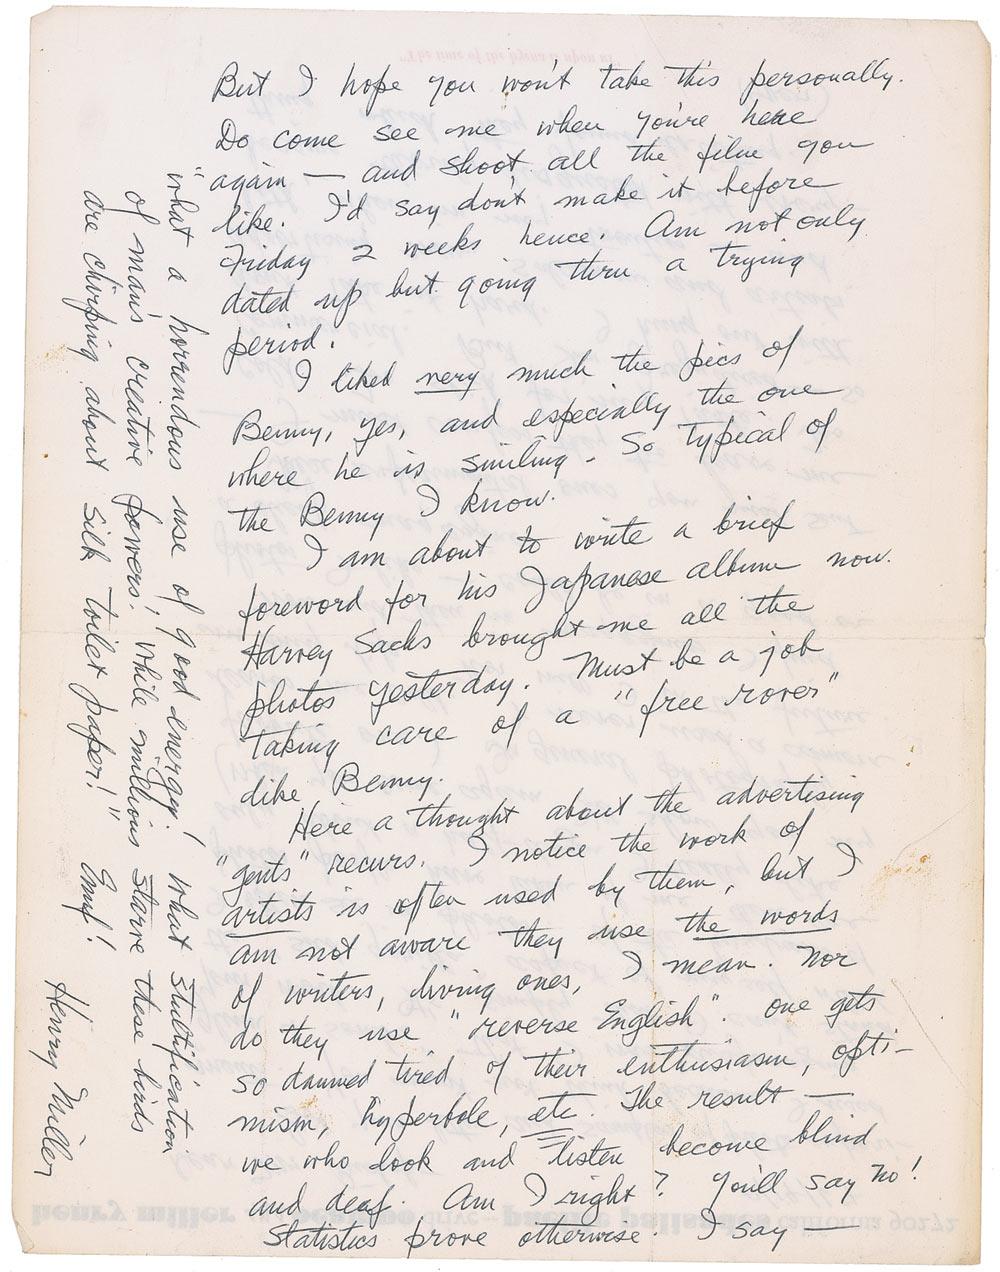 But I hope you won't take this personally.
Do come see me when you're here
again — and shoot all the film you
like. I'd say don't make it before
Friday 2 weeks hence. Am not only
dated up but going thru a trying
period.
I liked very much the pics of
Benny, yes, and especially the one
where he is smiling. So typical of
the Benny I know.
I am about to write a brief
foreword for his Japanese album now.
Harvey Sacks brought me all the
photos yesterday. Must be a job
taking care of a "free rover"
like Benny.
Here a thought about the advertising
"gents" recurs. I notice the work of
artists is often used by them, but I
am not aware they use the words
of writers, living ones, I mean. Nor
do they use "reverse English". One gets
so damned tired of their enthusiasm, opti-
mism, hyperbole, etc. The result —
we who look and listen become blind
and deaf. Am I right? You'll say No!
Statistics prove otherwise. I say —
"What a horrendous use of good energy! What stultification
of man's creative powers! While millions starve these birds
are chirping about silk toilet paper!" Enuf!
Henry Miller
"The time of the hyena is upon us"
henry miller drive – pacific palisades california 90272